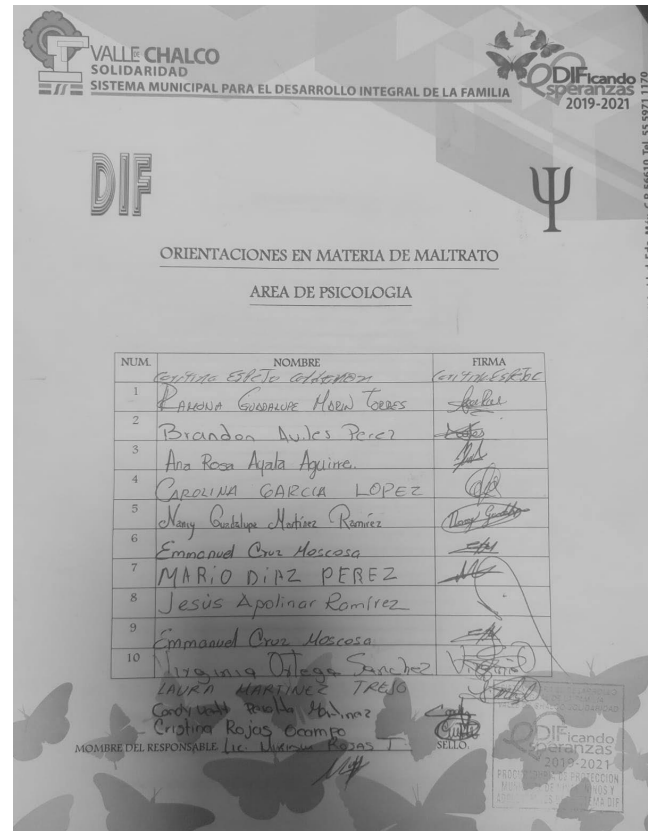 VALLE DE CHALCO
SOLIDARIDAD
SISTEMA MUNICIPAL PARA EL DESARROLLO INTEGRAL DE LA FAMILIA
DIFicando
speranzas
2019-2021
DIF
Ψ
ORIENTACIONES EN MATERIA DE MALTRATO
AREA DE PSICOLOGIA
NUM. NOMBRE FIRMA
Espejo
1 Ramona Guadalupe Morin Torres
2 Brandon Aviles Perez
3 Ana Rosa Ayala Aguirre.
4 CAROLINA GARCIA LOPEZ
5 Nancy Guadalupe Martinez Ramirez
6 Emmanuel Cruz Moscosa
7 MARIO DIAZ PEREZ
8 Jesús Apolinar Ramírez
9 Emmanuel Cruz Moscosa
10 Virginia Ortega Sanchez
LAURA MARTINEZ TREJO
Martinez
Cristina Rojas Ocampo
MOMBRE DEL RESPONSABLE Lic. Rojas T. SELLO.
DIFicando
speranzas
2019-2021